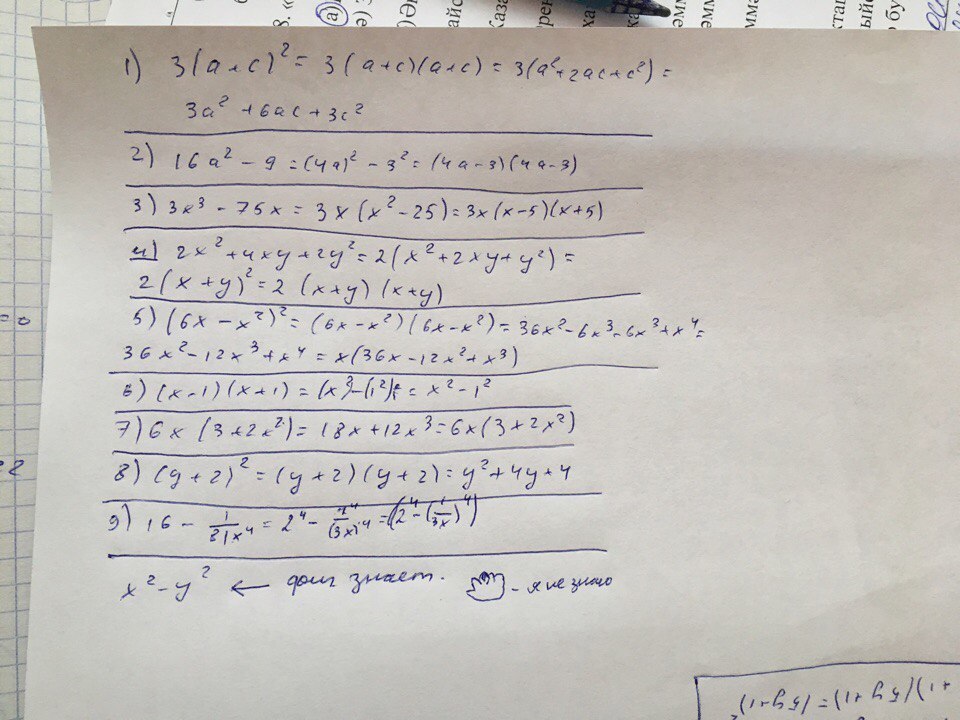 1) 3(a+c)² = 3(a+c)(a+c) = 3(a²+2ac+c²) =
3a² + 6ac + 3c²
2) 16a² - 9 = (4a)² - 3² = (4a-3)(4a-3)
3) 3x³ - 75x = 3x(x² - 25) = 3x(x-5)(x+5)
4) 2x² + 4xy + 2y² = 2(x² + 2xy + y²) =
2(x+y)² = 2(x+y)(x+y)
5) (6x - x²)² = (6x - x²)(6x - x²) = 36x² - 6x³ - 6x³ + x⁴ =
36x² - 12x³ + x⁴ = x(36x - 12x² + x³)
6) (x-1)(x+1) = = x² - 1²
7) 6x(3+2x²) = 18x + 12x³ = 6x(3+2x²)
8) (y+2)² = (y+2)(y+2) = y² + 4y + 4
9) 16 - 1/81x⁴ = 2⁴ - 1⁴/(3x)⁴ = (2⁴ - (1/3x)⁴)
x² - y² ← знает. - я не знаю
+1)(5y+1) = (5y+1)